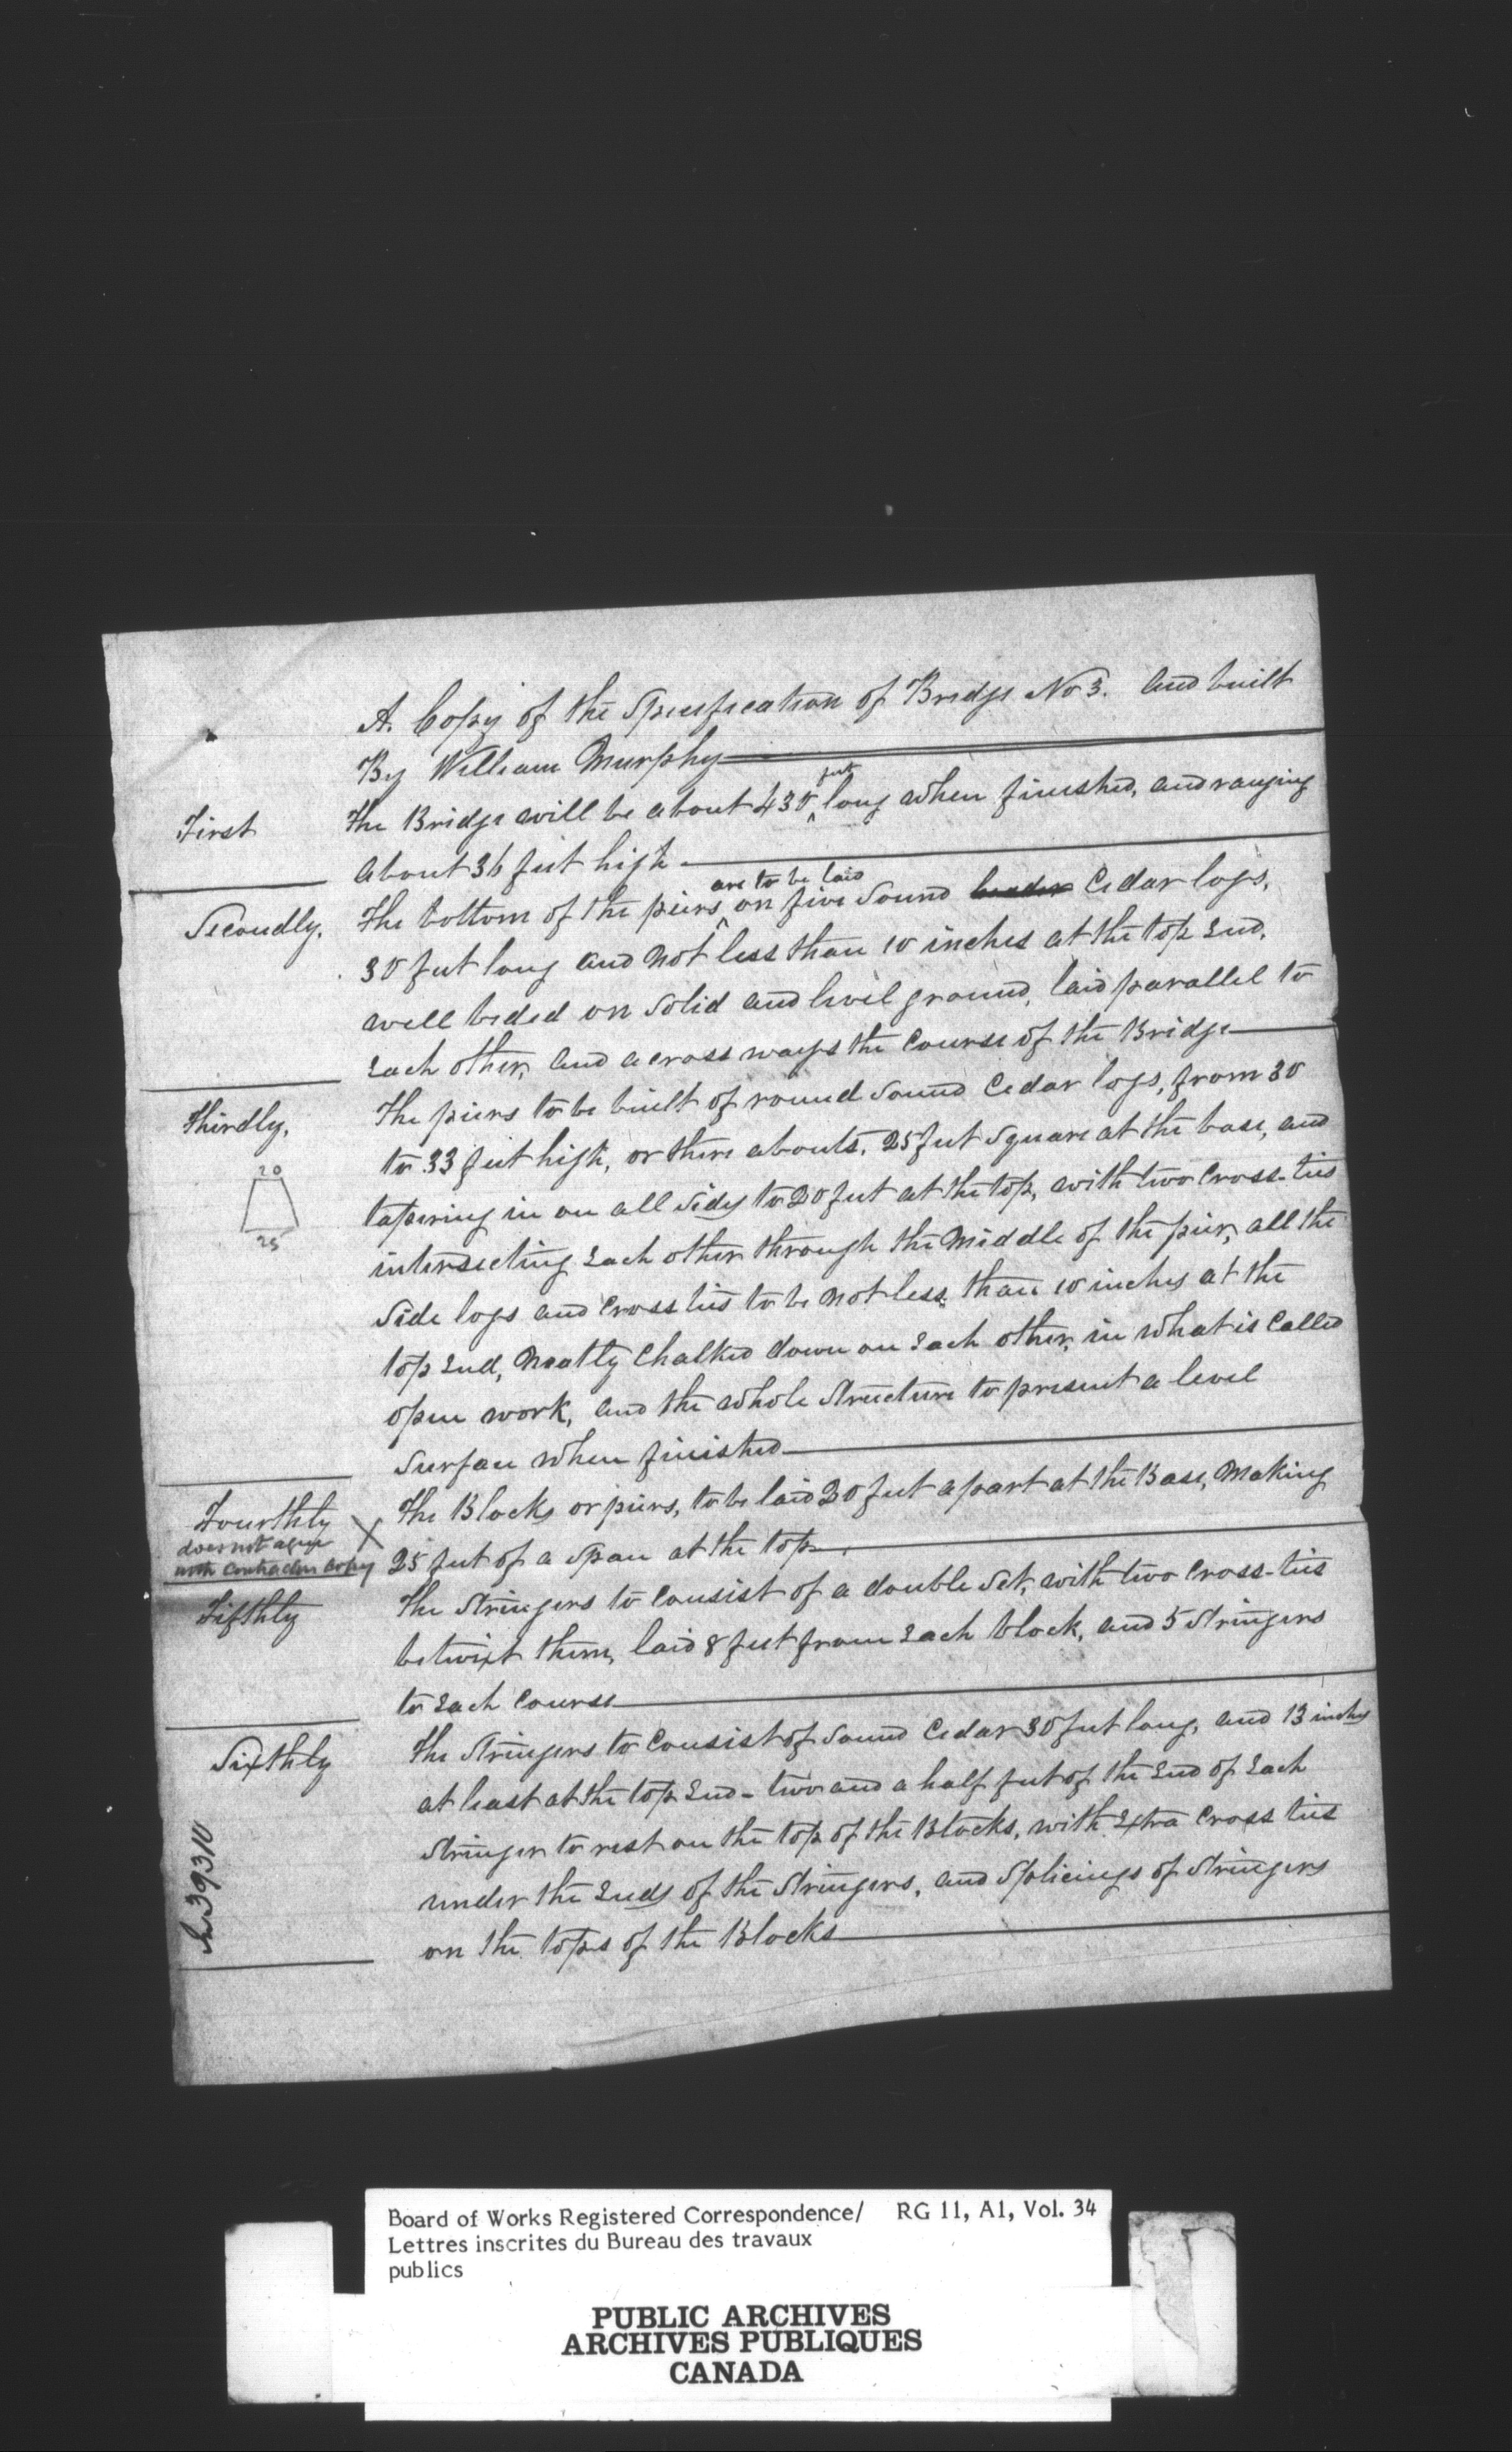 A. Copy of the Specification of Bridge No 3. and built
By William Murphy
First The Bridge will be about 430 feet long when finished, and ranging
about 36 feet high
Secondly. The bottom of the piers are to be laid on five Sound Cedar logs,
30 feet long and not less than 10 inches at the top End,
well beded on Solid and level ground, laid parallel to
Each other, and across ways the Course of the Bridge
Thirdly, The piers to be built of round Sound Cedar logs, from 30
to 33 feet high, or there abouts, 25 feet Square at the base, and
20
25
tapering in on all Sides to 20 feet at the top, with two Cross-ties
intersecting Each other through the Middle of the pier, all the
Side logs and Cross ties to be not less than 10 inches at the
top End, Neatly Chalked down on Each other, in what is Called
open work, and the whole Structure to present a level
Surface when finished
Fourthly X The Blocks or piers, to be laid 20 feet apart at the Base, Making
does not agree
with Contractors Copy 25 feet of a Span at the top
Fifthly The Stringers to Consist of a double Set, with two Cross-ties
betwixt them, laid 8 feet from Each block, and 5 Stringers
to Each Course
Sixthly The Stringers to Consist of Sound Cedar 30 feet long, and 13 inches
at least at the top End - two and a half feet of the End of Each
Stringer to rest on the top of the Blocks, with Extra Cross ties
under the Ends of the Stringers, and Splicings of Stringers
on the tops of the Blocks
39310
Board of Works Registered Correspondence/ RG 11, A1, Vol. 34
Lettres inscrites du Bureau des travaux
publics
PUBLIC ARCHIVES
ARCHIVES PUBLIQUES
CANADA